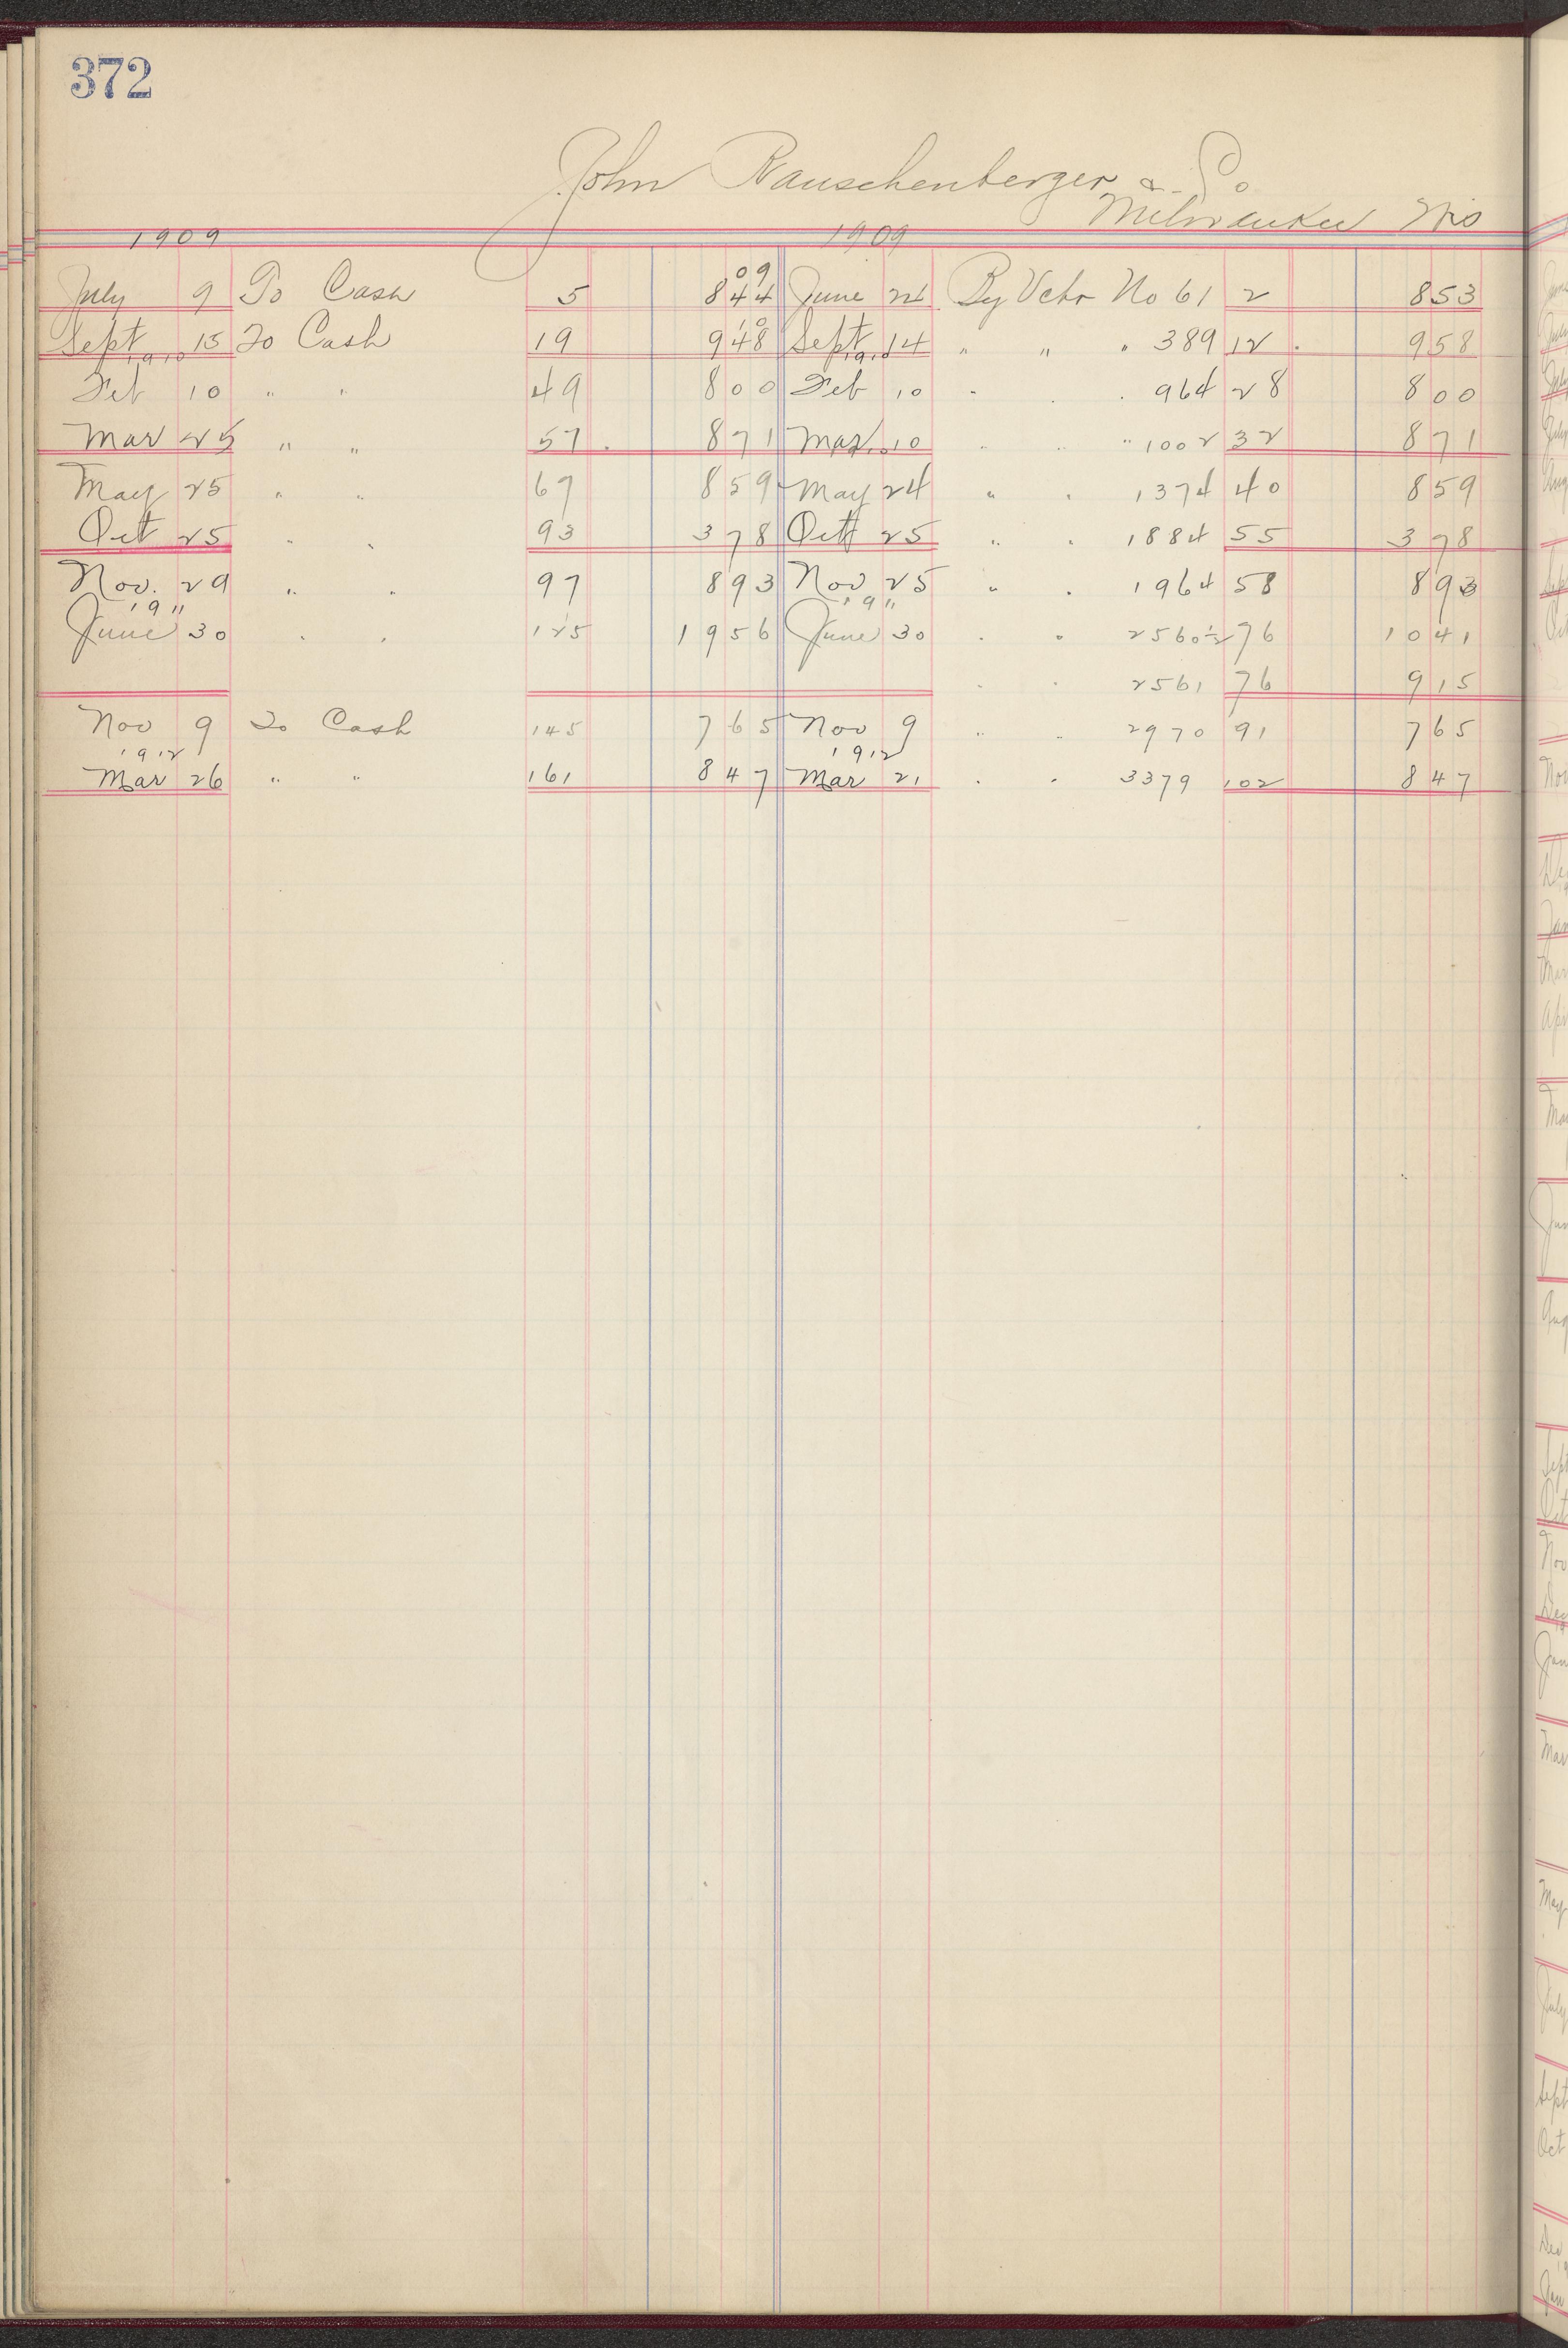 372
John Rauschenberger & Co
Milwaukee Wis
1909 1909
09
July 9 To Cash 5 844 June 24 By Vchr No 61 2 853
10
Sept 15 To Cash 19 948 Sept 14 " " " 389 12 958
1910 1910
Feb 10 " " 49 800 Feb 10 " " " 964 28 800
Mar 25 " " 57 871 Mar 10 " " " 1002 32 871
May 25 " " 67 859 May 24 " " 1374 40 859
Oct 25 " " 93 378 Oct 25 " " 1884 55 378
Nov. 29 " " 97 893 Nov 25 " " 1964 58 893
1911 1911
June 30 " " 125 1956 June 30 " " 2560½ 76 1041
" " 2561 76 915
Nov 9 To Cash 145 765 Nov 9 " " 2970 91 765
1912 1912
Mar 26 " " 161 847 Mar 21 " " 3379 102 847